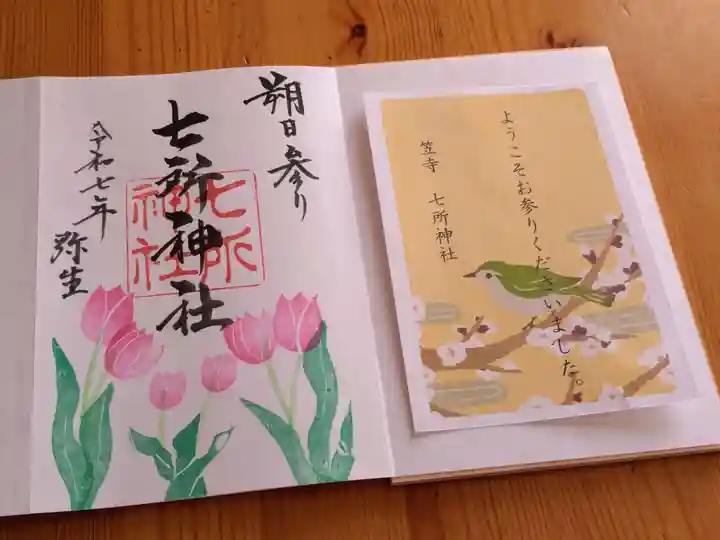 朔日参り
七所神社
七所
神社
令和七年
弥生
ようこそお参りくださいました。
笠寺 七所神社